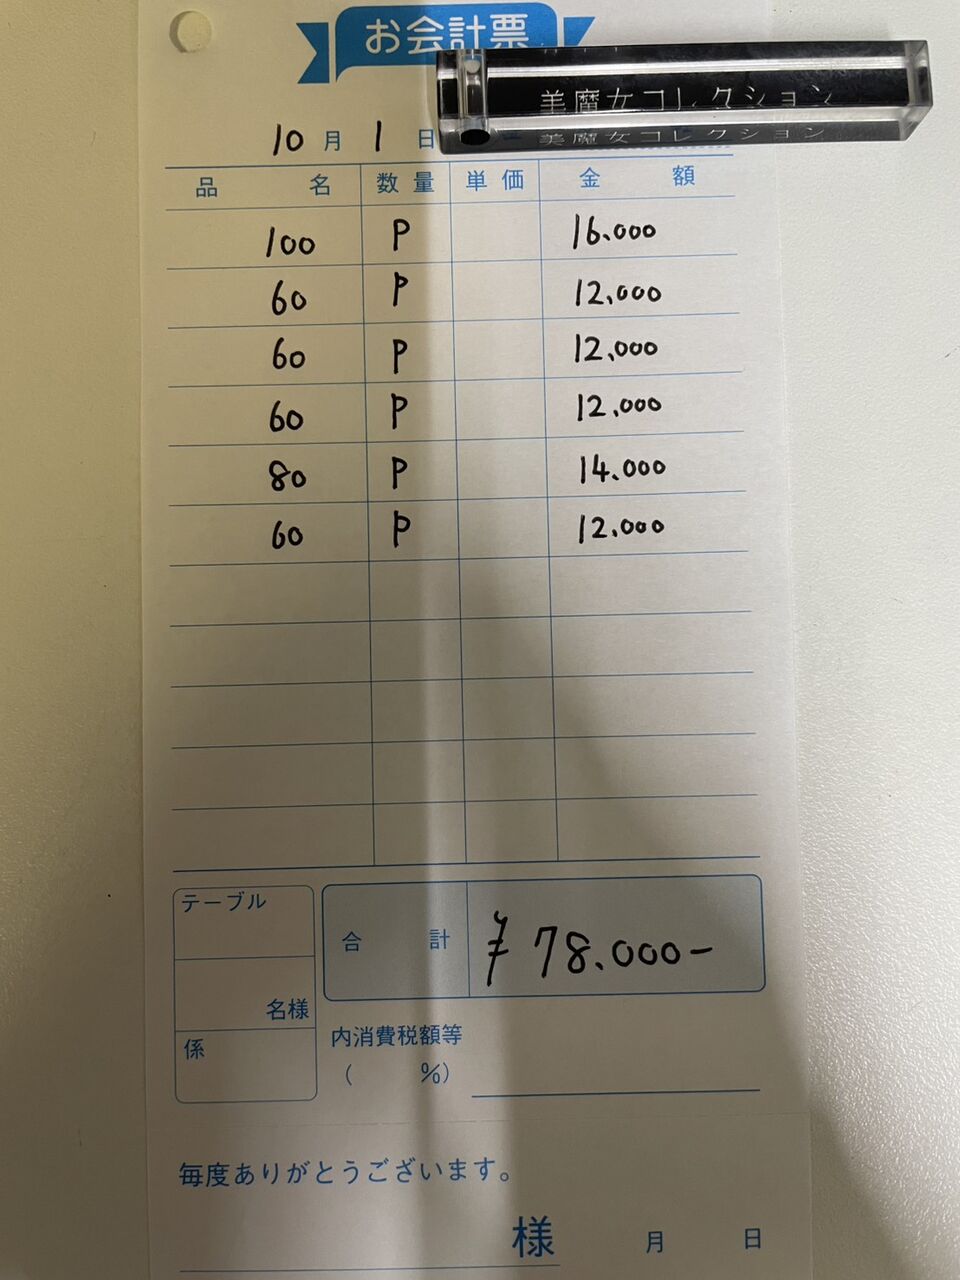 お会計票
美魔女コレクション
美魔女コレクション
10月1日
品名 数量 単価 金額
100 P 16.000
60 P 12.000
60 P 12.000
60 P 12.000
80 P 14.000
60 P 12.000
テーブル
名様
係
合計 ¥78.000-
内消費税額等
( %)
毎度ありがとうございます。
様 月 日